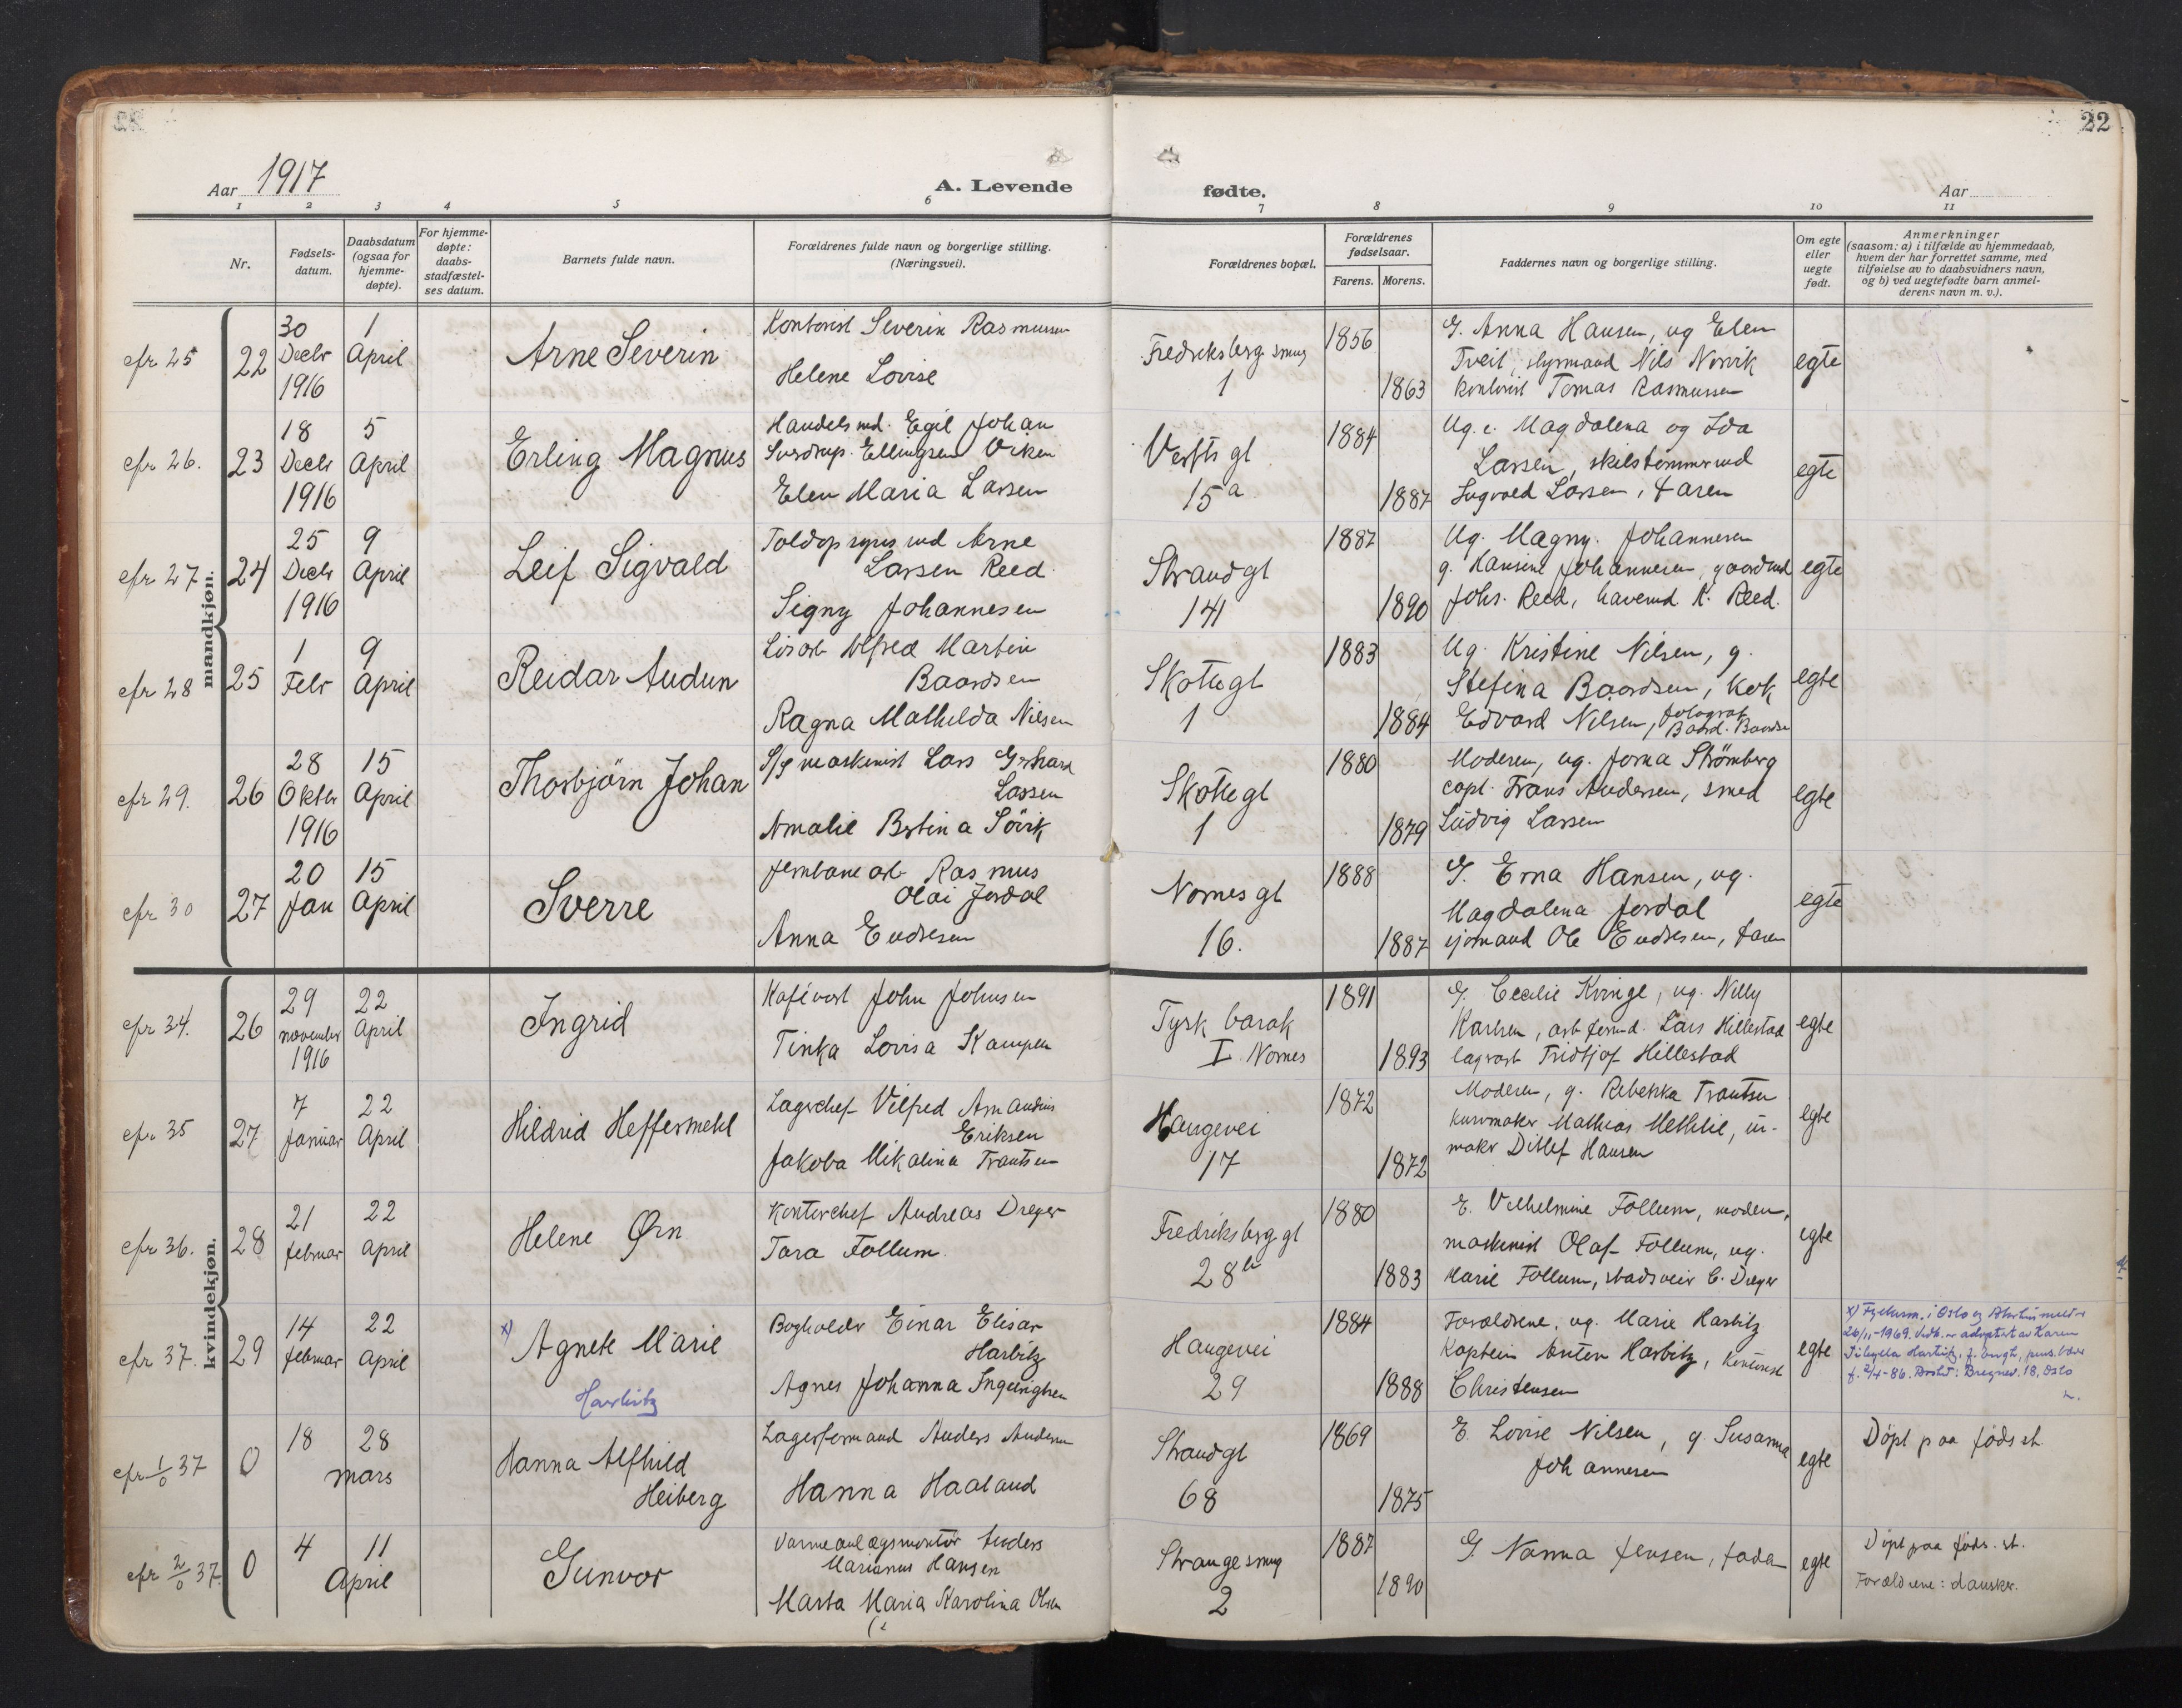 22
Aar 1917
A. Levende
fødte.
Aar
1 2 3 4 5 6 7 8 9 10 11
Nr.
Fødsels-
datum.
Daabsdatum
(ogsaa for
hjemme-
døpte).
For hjemme-
døpte:
daabs-
stadfæstel-
ses datum.
Barnets fulde navn.
Forældrenes fulde navn og borgerlige stilling.
(Næringsvei).
Forældrenes bopæl.
Forældrenes
fødselsaar.
Farens. Morens.
Faddernes navn og borgerlige stilling.
Om egte
eller
uegte
født.
Anmerkninger
(saasom: a) i tilfælde av hjemmedaab,
hvem der har forrettet samme, med
tilføielse av to daabsvidners navn,
og b) ved uegtefødte barn anmel-
derens navn m. v.).
mandkjøn.
cfr 25
22
30
Decbr
1916
1
April
Arne Severin
Kontorist Severin Rasmussen
Helene Lovise
Fredriksberg smug
1
1856
1863
G. Anna Hansen, ug Elen
Tveit, styrmand Nils Norvik
kontorist Tomas Rasmussen
egte
cfr 26.
23
18
Decbr
1916
5
April
Erling Magnus
Handelsmd. Egil Johan
Sverdrup Ellingsen Viken
Elen Maria Larsen
Verfts gt
15a
1884
1887
Ug. e. Magdalena og Ida
Larsen, skibstømmermd
Ingvald Larsen, faren
egte
cfr 27
24
25
Decbr
1916
9
April
Leif Sigvald
Toldopsynsmd Arne
Larsen Reed
Signy Johannesen
Strandgt
141
1887
1890
Ug. Magny. Johannesen
g. Hansine Johannesen, gaardmd
Johs. Reed, havemd K. Reed.
egte
cfr 28
25
1
Febr
9
April
Reidar Audun
Alfred Martin
Baardsen
Ragna Mathilda Nilsen
Skottegt
1
1883
1884
Ug. Kristine Nilsen, g.
Stefina Baardsen, kok
Edvard Nilsen, fotograf
Baard. Baardsen
egte
cfr 29.
26
28
Oktbr
1916
15
April
Thorbjörn Johan
S/S maskinist Lars Gerhard
Larsen
Amalie Bertina Sörvik
Skottegt
1
1880
1879
Moderen, ug. Jorna Strömberg
capt. Frans Andersen, smed
Ludvig Larsen
egte
cfr 30
27
20
Jan
15
April
Sverre
Jernbanearb Rasmus
Olai Jordal
Anna Endresen
Nornes gt
16.
1888
1887
G. Erna Hansen, ug.
Magdalena Jordal
sjømand Ole Endresen, faren
egte
kvindekjøn.
cfr 34.
26
29
november
1916
22
April
Ingrid
Kafévert John Johnsen
Tinka Lovisa Kampen
Tysk barak
I Nornes
1891
1893
G. Cecilie Kvinge, ug. Nelly
Karlsen, arb formd. Lars Hillestad
lagerarb Fridtjof Hillestad
egte
cfr 35
27
7
Januar
22
April
Hildrid Heffermehl
Lagerchef Vilfred Amandus
Eriksen
Jakoba Mikalina Trantsen
Haugevei
17
1872
1872
Moderen, g. Rebekka Trantsen
kurvmaker Mathias Methlie, ur-
maker Ditlef Hansen
egte
cfr 36.
28
21
februar
22
April
Helene Ørn
Kontorchef Andreas Dreyer
Tora Follum.
Fredriksberg gt
28b
1880
1883
E. Vilhelmine Follum, moderen,
maskinist Olaf Follum, ug.
Marie Follum, stadsveier C. Dreyer
egte
cfr 37.
29
14
februar
22
April
x) Agnete Marie
Harbitz
Bogholder Einar Elisar
Harbitz
Agnes Johanna Ingebrigtsen
Haugevei
29
1884
1888
Forældrene, ug. Marie Harbitz
Kaptein Anton Harbitz, Kontorist
Christensen
egte
x) Fylkesm. i Oslo og Akershus meldt
26/11-1969. Vedk. er adoptert av Karen
Harbitz, f.
f. 2/4-86. Bosted: Bregnev. 18, Oslo
cfr 1/0 37
0
18 28
mars
Hanna Alfhild
Heiberg
Lagerformand Anders Andersen
Hanna Haaland
Strandgt
68
1869
1875
E. Lovise Nilsen, g. Susanna
Johannesen
egte
Døpt paa føds st.
cfr 2/0 37.
0
4 11
April
Gunvor
Varmeanlægsmontør Anders
Marianus Hansen
Marta Maria Karolina Olsen
Strangesmug
2
1887
1890
G. Nanna Jensen, fader
egte
Døpt paa føds. st.
Forældrene: dansker.